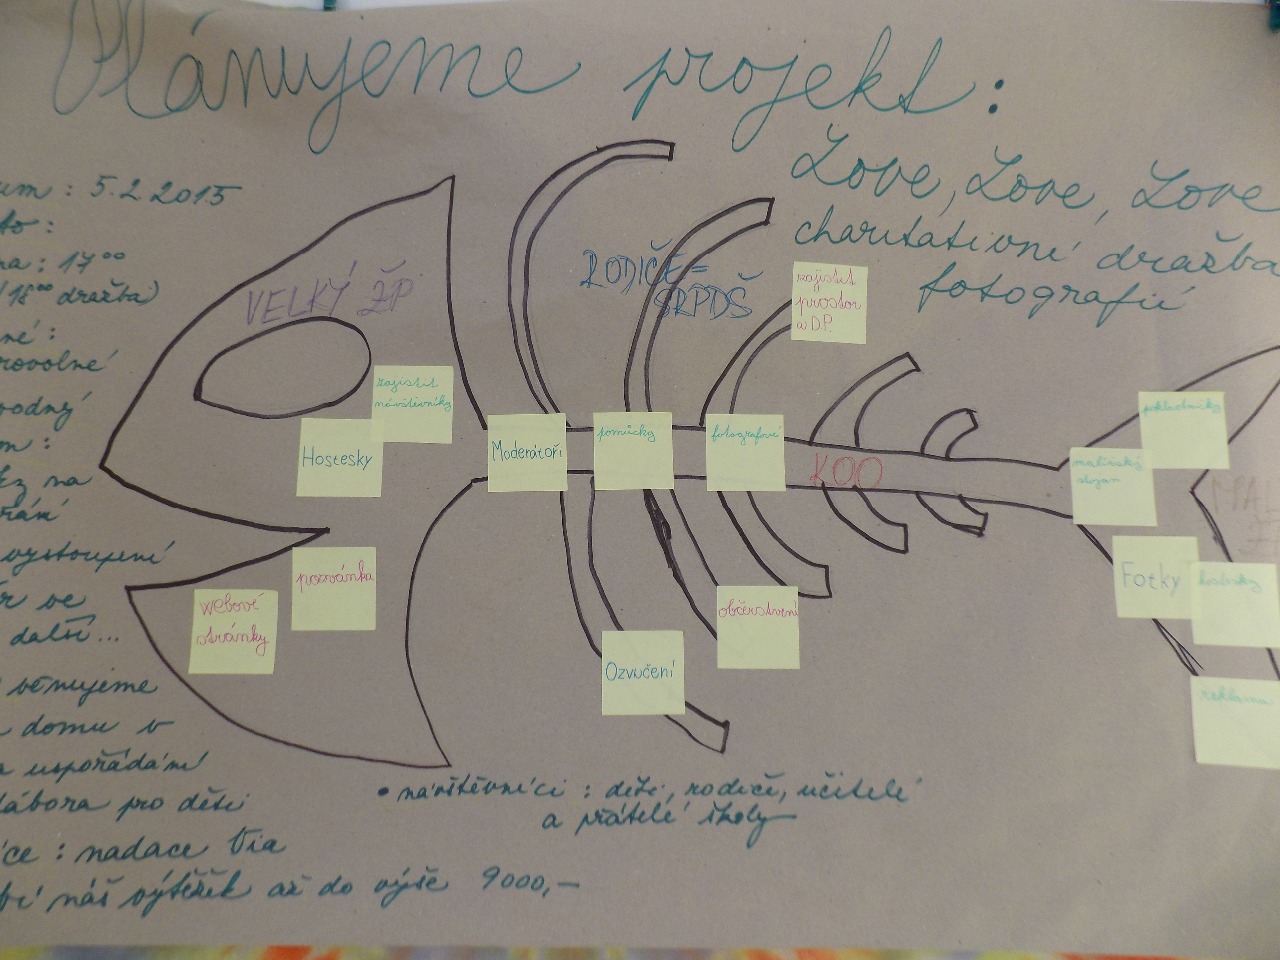 Plánujeme projekt:
Love, Love, Love
charitativní dražba
fotografií
um: 5.2.2015
to:
na: 17⁰⁰
(18⁰⁰ dražba)
né:
rovolné
vodný
m:
na
vystoupení
r ve
další...
věnujeme
domu v
a uspořádání
tábora pro děti
ce: nadace Via
náš výtěžek až do výše 9000,-
VELKÝ ŽP
RODIČE =
SRPDŠ
zajistit
prostor
a D.P.
zajistit
návštěvníky
Hostesky
Moderátoři
pomůcky
fotografové
KOO
pokladničky
malířský
stojan
pozvánka
webové
stránky
občerstvení
Ozvučení
Fotky
reklama
• návštěvníci: děti, rodiče, učitelé
a přátelé školy